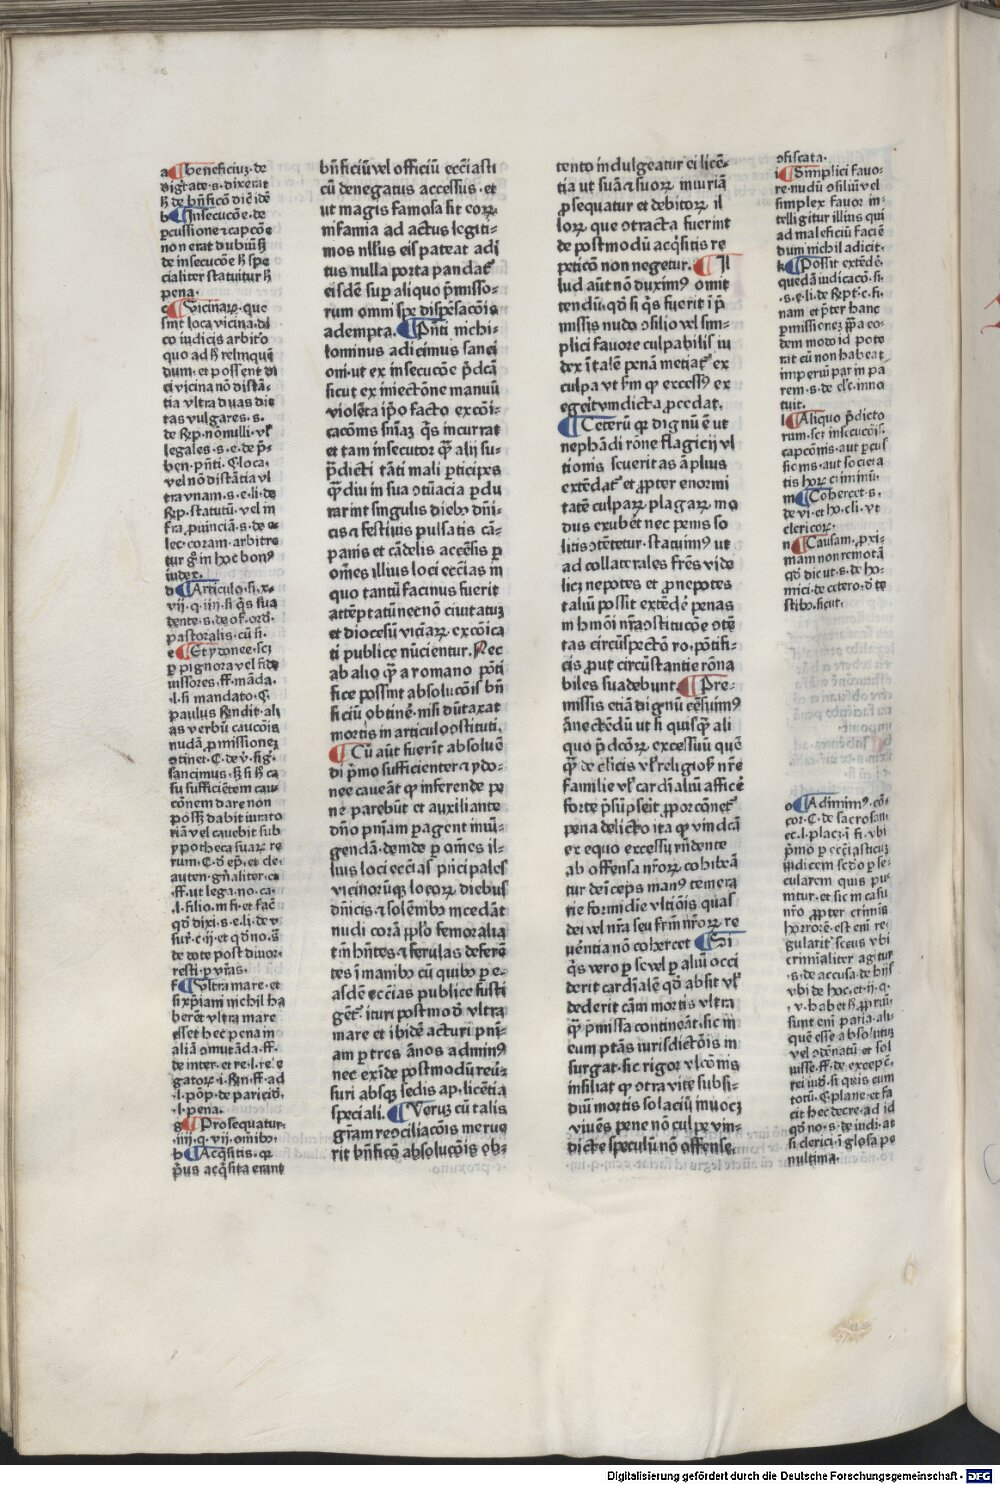 a beneficiuꝫ·de
dignitate·s·dixerat
hͦ de bn̄ficō dicͤ idē
b Insecucōe·de
ꝑcussione ⁊ capcōe
non erat dubiū hͦ
de insecucōe hͦ spe
cialiter statuitur hͦ
pena·
c Vicinaꝝ·que
sint loca vicina·di
co iudicis arbitͦo
quo ad hͦ relinquē
dum·et possent di
ci vicina nō distā-
tia vltra duas die
tas vulgares·s·
de rescͥp·nōnulli·vl̄
legales·s·e·de p̄-
ben·pn̄ti·C loca·
vel nō distātia vl
tra vnam·s·e·li·de
rescͥp·statutū·vel in
fra ꝓuinciā·s·de e
lec·coram·arbitre
tur gͦ in hoc bonꝰ
iudex·
d Articulo·si·x-
vij·q·iiij·si q̄s sua
dente·s·de of·ord·
pastoralis·cū si·
e Et ydonee·scꝫ
ꝑ pignora vel fide
iussores·ff·māda·
l·si mandato·C
paulus rn̄dit·ali
as verbū caucōis
nudā ꝓmissioneꝫ
ↄtinet·C·de v̄·sig·
sancimus·hͦ si hͦ ca
su sufficiētem cau-
cōnem dare non
possꝫ dabit iurato
riā vel cauebit sub
ypotheca suaꝝ re
rum·C·d̄ ep̄·et cle·
auten·gn̄aliter·c·
·ff·ut lega·no·ca·
·l·filio·in fi·et facͥ
qd̄ dixi·s·e·li·de v
sur·c·ij·et qd̄ no·s̄
de dote post diuor·
resti·ꝑ vrās·
f Vltra mare·et
si xp̄iani nichil ha
berēt vltra mare
esset hec pena in
aliā ↄmutāda·ff·
de inter·et re·l·re e
gatoꝝ·i·fin·ff·ad
·l·pōp·de paricid·
·l·pena·
g Prosequatur·
iiij·q·vij·omībo·
h Acq̄sitis·qꝛ
pͥus acq̄sita erant
bn̄ficiū vel officiū ecc̄iasti
cū denegatus accessus·et
ut magis famosa sit eoꝝ
infamia ad actus legiti-
mos nll̄us eis pateat adi
tus nulla porta pandat᷑
eisdē suꝑ aliquo p̄misso-
rum omni spe dispēsacōis
adempta· Pn̄ti nichi-
lominus adicimus sanci
oni·ut ex insecucōe p̄dcā
sicut ex iniectōne manuū
violēta ip̄o facto excōi-
cacōnis sn̄iaꝫ q̄s incurrat
et tam insecutor qͣ alij su-
p̄dicti tāti mali ꝑticipes
qͣdiu in sua ↄtūacia ꝑdu
rarint singulis diebꝫ dn̄i-
cis ⁊ festiuis pulsatis cā-
panis et cādelis accēsis ꝑ
om̄es illius loci ecc̄ias in
quo tantū facinus fuerit
attēptatū necnō ciuitatuꝫ
et diocesū viciaꝝ excōica
ti publice nūcientur· Nec
ab alio qͣ a romano pōti
fice possint absolucōis bn̄
ficiū obtinē·nisi dūtaxat
mortis in articulo ↄstituti·
Cū aūt fuerīt absoluē
di pͥmo sufficienter ⁊ ydo-
nee caueāt ꝙ inferende pe
ne parebūt et auxiliante
dn̄o pn̄iam ꝑagent iniū-
gendā·deinde ꝑ om̄es il-
lius loci ecc̄ias pn̄cipales
vicinorūqꝫ locoꝝ diebus
dn̄icis ⁊ solēnibꝫ incedāt
nudi corā pp̄lo femoralia
tm̄ hn̄tes ⁊ ferulas deferē
tes ī manibꝫ cū quibꝫ ꝑ e-
asdē ecc̄ias publice fusti
gēt᷑·ituri postmod̄ vltra
mare et ibidē acturi pn̄i-
am ꝑ tres ānos ad minꝰ
nec exīde postmodū reūi-
suri absqꝫ sedis ap·licētia
speciali· Veruꝫ cū talis
gr̄iam recōciliacōis meruē
rit bn̄ficō absolucōis ob-
tento indulgeatur ei licē-
tia ut suā ⁊ suoꝝ iniuriā
ꝓsequatur et debitoꝝ il
loꝝ que ↄtracta fuerint
de postmodū acq̄sitis re
peticō non negetur· Il
lud aūt nō duximꝰ omit
tendū·qd̄ si q̄s fuerit ī p̄
missis nudo ↄsilio vel sim-
plici fauore culpabilis iu
dex ī talē penā metiat᷑ ex
culpa vt fͥm qꝫ excessꝰ ex
egeit vindicta ꝓcedat·
Ceterū qꝛ dignū ē ut
nephādi rōne flagicij vl
tionis seueritas āplius
extēdat᷑ et ꝓpter enormi
tatē culpaꝝ plagaꝝ mo
dus exubēt nec penis so
litis ↄtētetur·statuimꝰ ut
ad collaterales fr̄es vide
licꝫ nepotes et ꝓnepotes
taliū possit extēdē penas
in hmōi nr̄a ↄstitucōe ↄtē
tas circūspectō ro·pōtifi-
cis·put circūstantie rōna
biles suadebunt· Pre-
missis etiā dignū cēsuimꝰ
ānectēdū ut si quisqͣ ali
quo p̄dcōꝝ excessuū quē
qͣ de cl̄icis vl̄ religiosͥ nr̄e
familie vl̄ cardīaliū affice
forte p̄sūpseīt ꝓporcōnet᷑
pena delicto ita ꝙ vindcā
ex equo excessu rn̄dente
ab offensa nr̄oꝝ cohibeā
tur deīceps manꝰ temera
rie formidīe vltiōis quas
dei vel nr̄a seu fr̄m nr̄oꝝ re
uēntia nō cohercet Si
q̄s vero ꝑ se vl ꝑ aliū occi
derit cardīalē qd̄ absit vl̄
dederit cām mortis vltra
qͣ p̄missa contineāt·sic in
eum ptās iurisdictōis in
surgat·sic rigor vlcōnis
insiliat ꝙ otra vite subsi-
diū mortis solaciū inuocꝫ
viuēs pene nō culpe vin-
dicte speculū nō offense·
ↄfiscata·
i Simplici fauo-
re·nudū ↄsiliū vel
simplex fauor in-
telligitur illius qui
ad maleficiū faciē
dum nichil adicit·
k Possit extēdē·
quedā iudicacō·si·
·s·e·li·de rescͥpt·c·si-
nam et p̄ter hanc
ꝑmissioneꝫ ꝑpa eo-
dem modo id pote
rat cū non habeat
imperiū par in pa
rem·s·de elc̄·inno
tuit·
l Aliquo p̄dicto
rum·scꝫ insecucōis·
capcōnis·aut ꝑcus
sionis·aut societa
tis hoꝝ criminū·
m Cohercet·s·
de vi·et ho·cli·vt
clericoꝝ·
n Causam·ꝓxi-
mam non remotā
qd̄ dic ut·s·de ho-
mici·de cetero·d̄ te
stibꝫ·sicut·
o Adimimꝰ·cō-
cor·C·de sacrosan·
ec·l·placꝫ·ī fi·vbi
pͥmo ꝑ ecc̄iasticuꝫ
iudicem secūdo ꝑ se-
cularem quis pu-
nitur·et sic in casu
nr̄o ꝓpter criminis
horrorē·est enī re-
gularitͥ secus vbi
crimīaliter agitur
·s·de accusa·de hn̄s
vbi de hoc·et·ij·q·
·v·habet hͦ ꝓprium·
sunt enī paria·ali-
quē esse absolutuꝫ
vel ↄdēnatū et sol
uisse·ff·de excepc̄·
rei iud·si quis cum
totū·C plane·et fa
cit hec decre·ad id
qd̄ no·s·de iudi·at
si clerici·ī glosa pe
nultima·
Digitalisierung gefördert durch die Deutsche Forschungsgemeinschaft - DFG